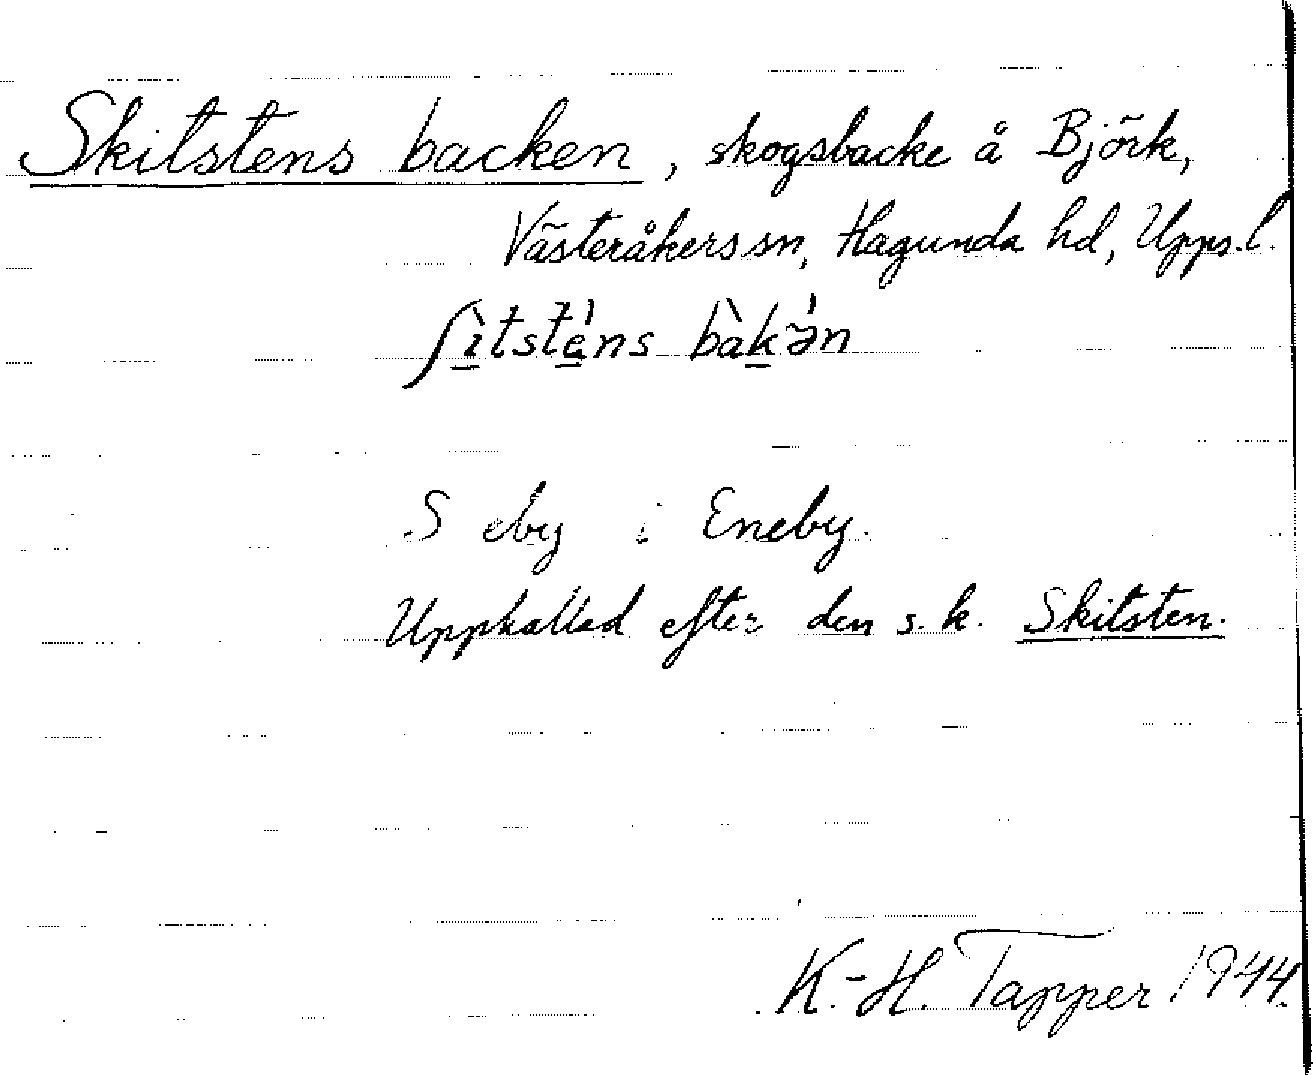 Skitstens backen, skogsbacke å Björk,
Västeråkers sn, Hagunda hd, Upps. l.
ʃı̀tste̍ns bàkə̍n
S eby i Eneby.
Uppkallad efter den s. k. Skitsten.
K.-H. Tapper 1944.